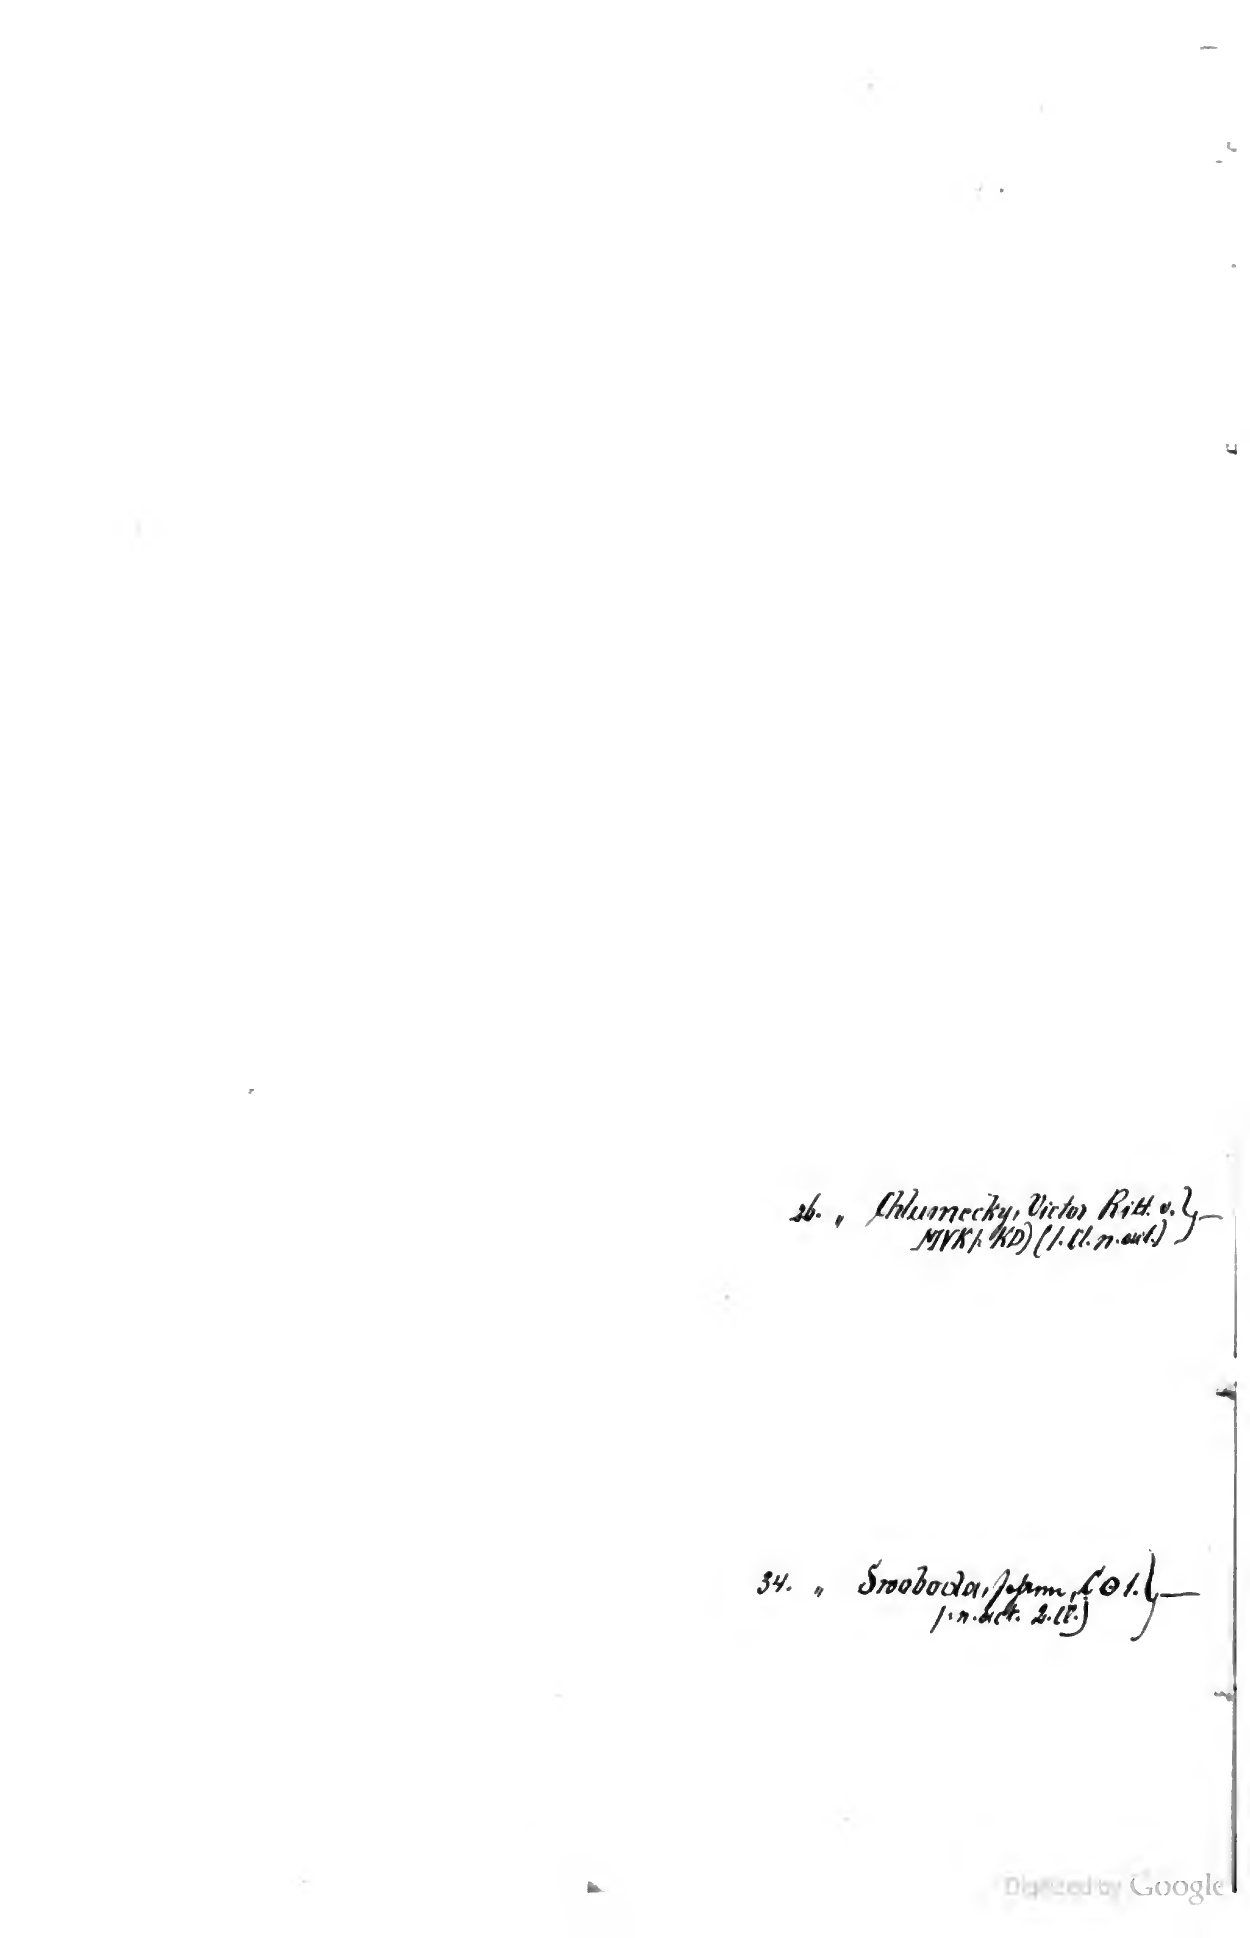 26. „ Chlumecky, Victor Ritt. v. } —
MVK/. KD) (1. Cl. n. aut.)
34. „ Swoboda, Johann, O 1. } —
n. act. 2. Cl.)
Digitized by Google